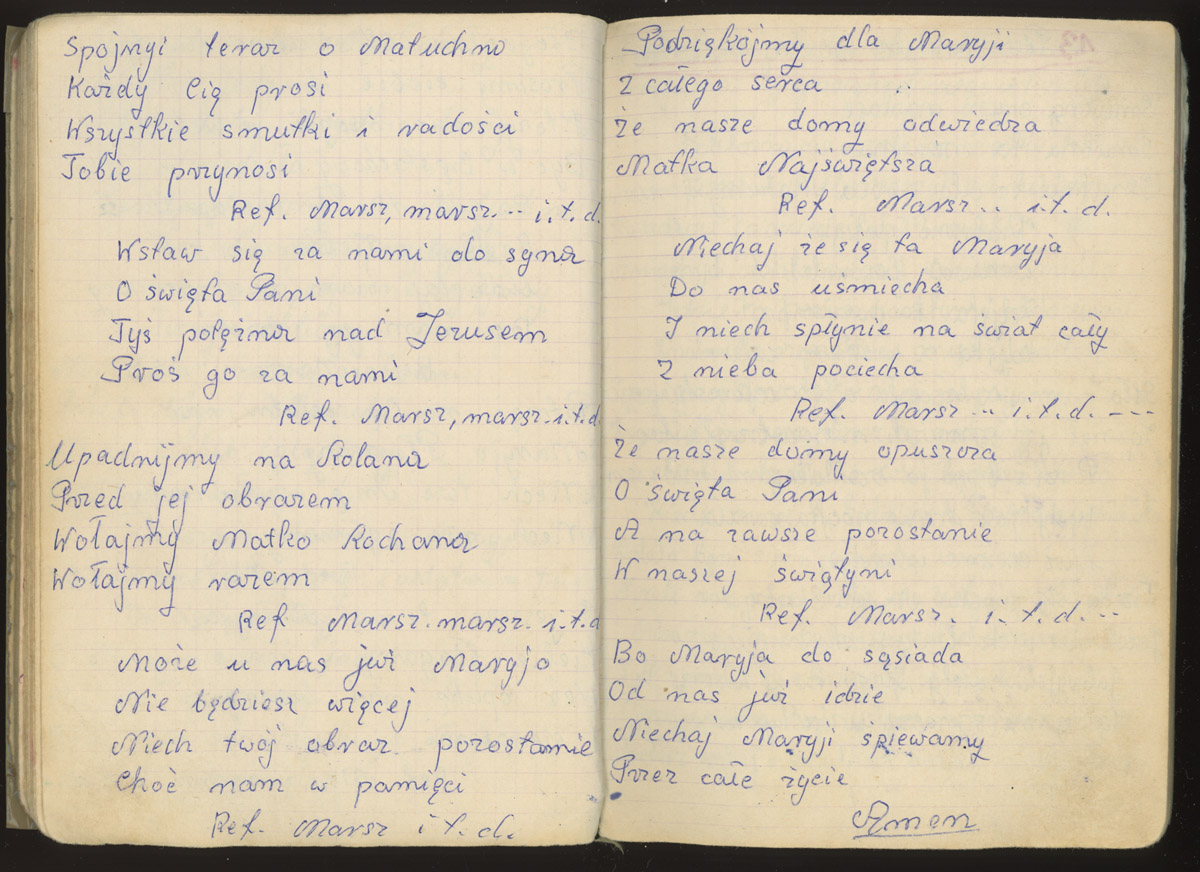 Spojrzyj teraz o Matuchno
Każdy Cię prosi
Wszystkie smutki i radości
Tobie przynosi
Ref. Marsz, marsz... i.t.d.
Wstaw się za nami do syna
O święta Pani
Tyś potężna nad Jezusem
Proś go za nami
Ref. Marsz, marsz. i.t.d
Upadnijmy na Kolana
Przed jej obrazem
Wołajmy Matko Kochana
Wołajmy razem
Ref Marsz. marsz. i.t.d
Może u nas już Maryjo
Nie będziesz więcej
Niech twój obraz pozostanie
Choć nam w pamięci
Ref. Marsz i t. d.
Podziękójmy dla Maryji
Z całego serca
Że nasze domy odwiedza
Matka Najświętsza
Ref. Marsz.. i.t. d.
Niechaj że się ta Maryja
Do nas uśmiecha
I niech spłynie na świat cały
Z nieba pociecha
Ref. Marsz... i.t.d. ---
Że nasze domy opuszcza
O święta Pani
A na zawsze pozostanie
W naszej świątyni
Ref. Marsz. i.t.d.--
Bo Maryja do sąsiada
Od nas już idzie
Niechaj Maryji śpiewamy
Przez całe życie
Amen